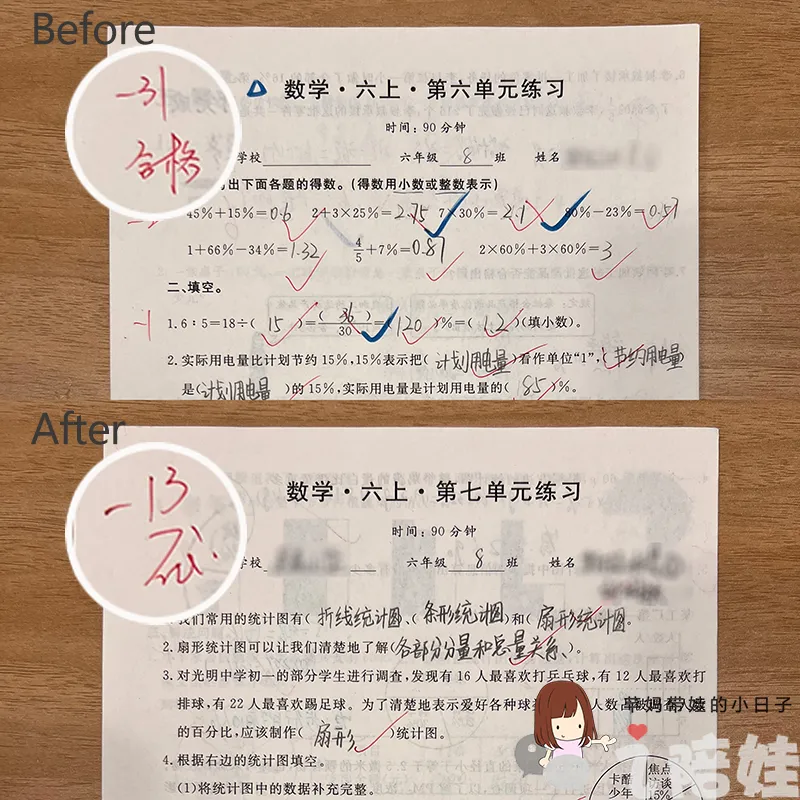 Before
-31
合格
数学·六上·第六单元练习
时间:90分钟
学校 六年级 8 班 姓名
出下面各题的得数。(得数用小数或整数表示)
45%+15%=0.6 2+3×25%=2.75 7×30%=2.1 80%-23%=0.57
1+66%-34%=1.32 4/5+7%=0.87 2×60%+3×60%=3
二、填空。
-1 1.6:5=18÷( 15 )=( 36 )/30=( 120 )%=( 1.2 )(填小数)。
2.实际用电量比计划节约15%,15%表示把( 计划用电量 )看作单位“1”,( 节约用电量
是( 计划用电量 )的15%,实际用电量是计划用电量的( 85 )%。
After
-13
数学·六上·第七单元练习
时间:90分钟
学校 六年级 8 班 姓名
1.我们常用的统计图有( 折线统计图 )、( 条形统计图 )和( 扇形统计图
2.扇形统计图可以让我们清楚地了解( 各部分分量和总量关系、)。
3.对光明中学初一的部分学生进行调查,发现有16人最喜欢打乒乓球,有12人最喜欢打
排球,有22人最喜欢踢足球。为了清楚地表示爱好各种球 人数
的百分比,应该制作( 扇形 )统计图。
妈带娃的小日子
4.根据右边的统计图填空。
(1)将统计图中的数据补充完整。
卡酷
少年
焦点
访谈
15%
陪娃